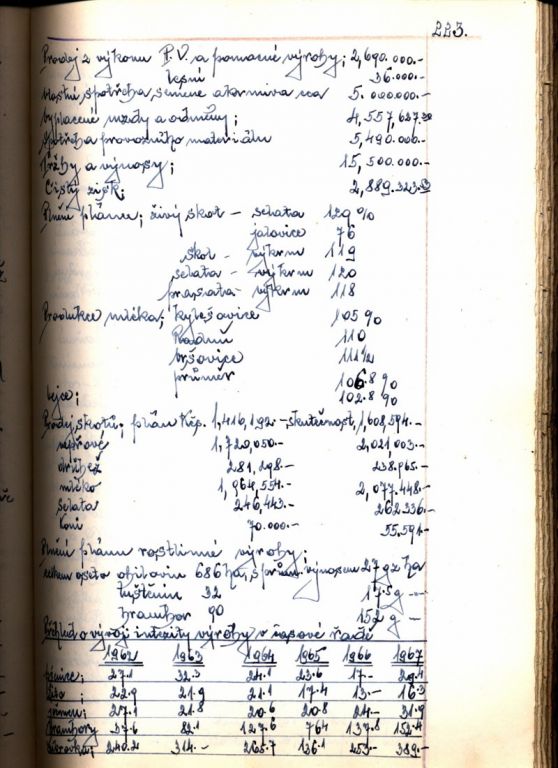 223.
Prodej z výkonu P.V. a pomocné výroby; 2,690.000.-
lesní 36.000.-
vlastní spotřeba, semene a krmiva cca 5.000.000.-
vyplacené mzdy a odměny; 4,557,627.20
spotřeba provozního materiálu 5,490.000.-
Tržby a výnosy; 15,500.000.-
Čistý zisk; 2,889.323.
Plnění plánu; živý skot - selata 129 %
jalovice 76
skot - výkrm 119
selata - výkrm 120
prasata - výkrm 118
Produkce mléka; Kylešovice 105 %
Raduň 110
Vršovice 111
průměr 106.8 %
Vejce; 102.8 %
Prodej skotu; plán Kčs. 1,416,192.- skutečnost, 1,608,594.-
vepřové 1,720,050.- 2,021,003.-
drůbež 281,198.- 238.965.-
mléko 1,964,554.- 2,077.448.-
selata 246,443.- 262.336.-
koní 70.000.- 55.591.-
Plnění plánu rostlinné výroby;
celkem oseto obilovin 686 ha, s prům. výnosem 27 q z ha
luštěnin 32 17.5 q -"-
brambor 90 152 q -
Přehled o vývoji intezity výroby v časové řadě
1962 1963 1964 1965 1966 1967
pšenice; 27.1 32.3 24.1 23.6 17.- 29.4
žito; 22.9 21.9 21.1 17.4 13.- 16.3
ječmen; 27.1 21.8 20.6 20.8 24.- 31.9
brambory 37.6 82.1 127.6 764 137.8 152.4
cukrovka; 240.2 314.- 265.7 136.1 253.- 389.-